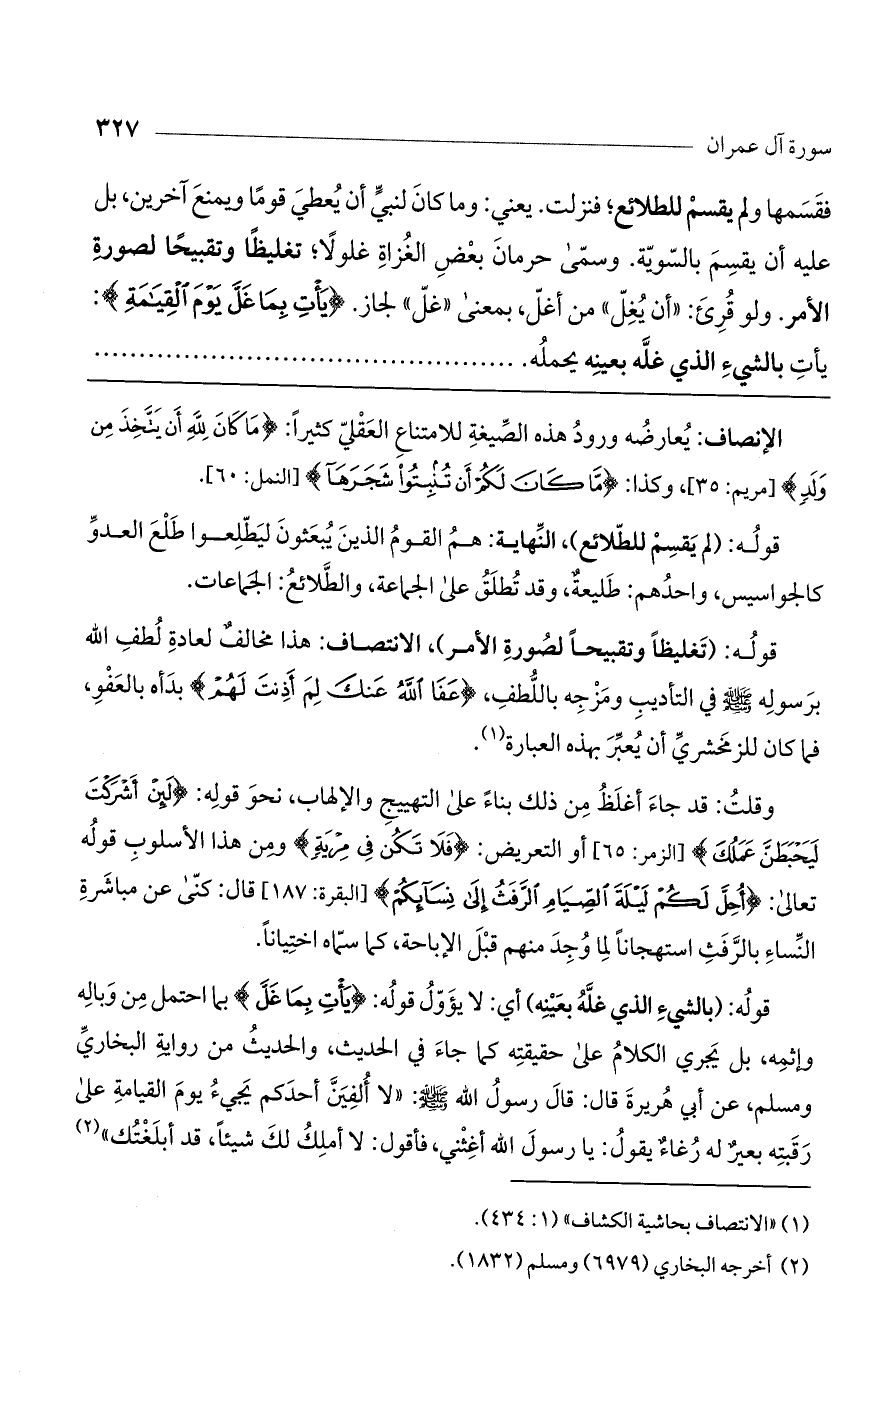 سورة آل عمران ٣٢٧
فقَسَمها ولم يقسمْ للطلائع؛ فنزلت. يعني: وما كانَ لنبيٍّ أن يُعطيَ قومًا ويمنعَ آخرين، بل
عليه أن يقسِمَ بالسّويّة. وسمّىٰ حرمانَ بعْضِ الغُزاةِ غلولًا؛ تغليظًا وتقبيحًا لصورةِ
الأمر. ولو قُرِئَ: «أن يُغِلّ» من أغلّ، بمعنىٰ «غلّ» لجاز. ﴿يَأْتِ بِمَا غَلَّ يَوْمَ ٱلْقِيَـٰمَةِ﴾:
يأتِ بالشيءِ الذي غلَّه بعينِه يحملُه. ................................................
الإنصاف: يُعارضُه ورودُ هذه الصِّيغةِ للامتناعِ العَقْليّ كثيراً: ﴿مَا كَانَ لِلَّهِ أَن يَتَّخِذَ مِن
وَلَدٍ﴾ [مريم: ٣٥]، وكذا: ﴿مَّا كَانَ لَكُمْ أَن تُنۢبِتُوا۟ شَجَرَهَآ﴾ [النمل: ٦٠].
قولُه: (لم يَقسِمْ للطّلائع)، النِّهاية: هـمُ القـومُ الذينَ يُبعَثونَ ليَطَّلِعـوا طَلْعَ العـدوِّ
كالجواسيس، واحدُهم: طَليعةٌ، وقد تُطلَقُ علىٰ الجماعة، والطَّلائعُ: الجَماعات.
قولُـه: (تَغليظـاً وتقبيحـاً لصُورةِ الأمـر)، الانتصـاف: هذا مخالفٌ لعادةِ لُطفِ الله
برَسولِه ﷺ في التأديبِ ومَزْجِه باللُّطف، ﴿عَفَا ٱللَّهُ عَنكَ لِمَ أَذِنتَ لَهُمْ﴾ بدَأه بالعَفْوِ،
فما كان للزمَخشريِّ أن يُعبِّرَ بهذه العبارة(١).
وقلتُ: قد جاءَ أغلَظُ مِن ذلك بناءً علىٰ التهييجِ والإلهاب، نحوَ قولِه: ﴿لَئِنْ أَشْرَكْتَ
لَيَحْبَطَنَّ عَمَلُكَ﴾ [الزمر: ٦٥] أو التعريض: ﴿فَلَا تَكُن فِى مِرْيَةٍ﴾ ومِن هذا الأسلوبِ قولُه
تعالىٰ: ﴿أُحِلَّ لَكُمْ لَيْلَةَ ٱلصِّيَامِ ٱلرَّفَثُ إِلَىٰ نِسَآئِكُمْ﴾ [البقرة: ١٨٧] قال: كنّىٰ عن مباشَرةِ
النِّساءِ بالرَّفَثِ استهجاناً لِما وُجِدَ منهم قبْلَ الإباحة، كما سمّاه اختِياناً.
قولُه: (بالشيءِ الذي غلَّهُ بعَيْنِه) أي: لا يؤوّلُ قولُه: ﴿يَأْتِ بِمَا غَلَّ﴾ بما احتمل مِن وَبالِه
وإثمِه، بل يَجري الكلامُ علىٰ حقيقتِه كما جاءَ في الحديث، والحديثُ من روايةِ البخاريِّ
ومسلم، عن أبي هُريرةَ قال: قالَ رسولُ الله ﷺ: «لا أُلفِيَنَّ أحدَكم يَجيءُ يومَ القيامةِ علىٰ
رَقَبتِه بعيرٌ له رُغاءٌ يقولُ: يا رسولَ الله أغِثْني، فأقول: لا أملِكُ لكَ شيئاً، قد أبلَغْتُك»(٢)
(١) «الانتصاف بحاشية الكشاف» (١: ٤٣٤).
(٢) أخرجه البخاري (٦٩٧٩) ومسلم (١٨٣٢).